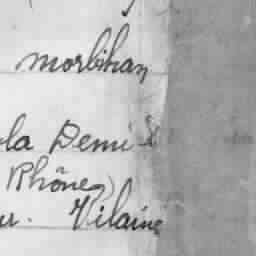 morbihan
ola Demi-
Rhône)
u. Vilaine